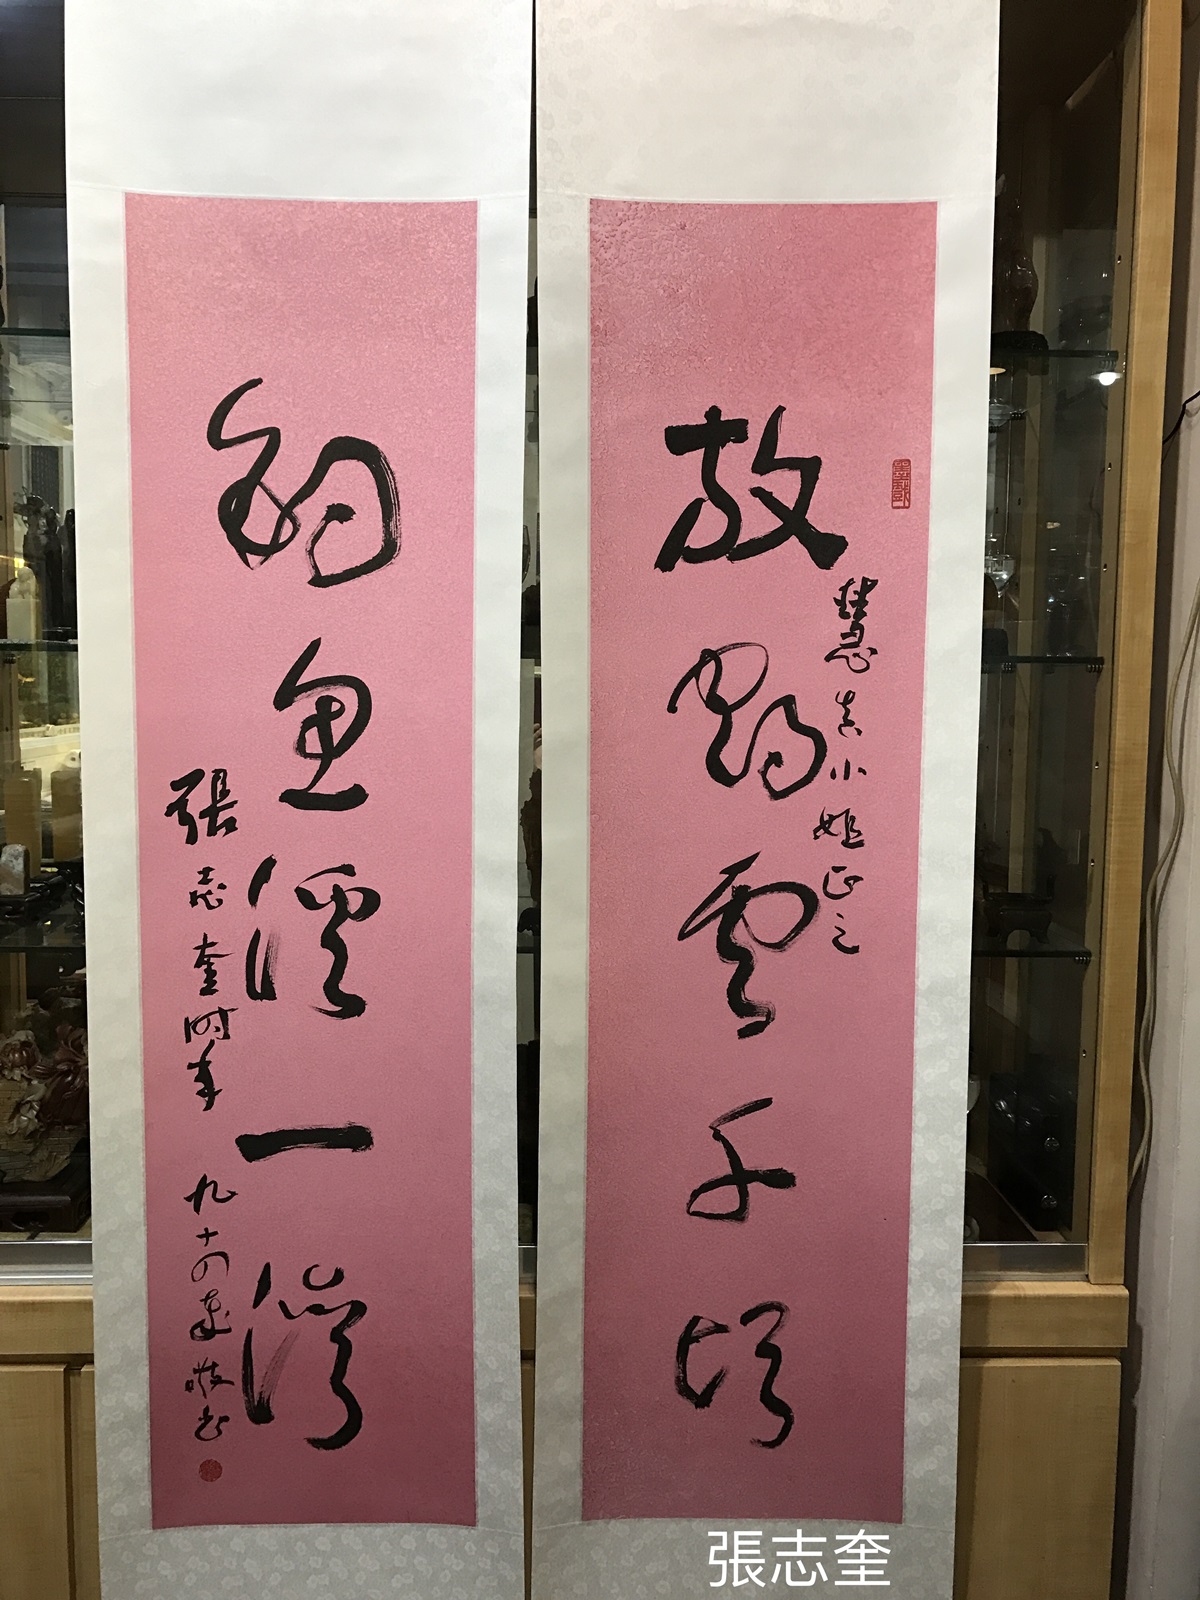 放鶴雲千頃
慧真小姐正之
釣魚溪一灣
張志奎時年九十四歲敬書
張志奎